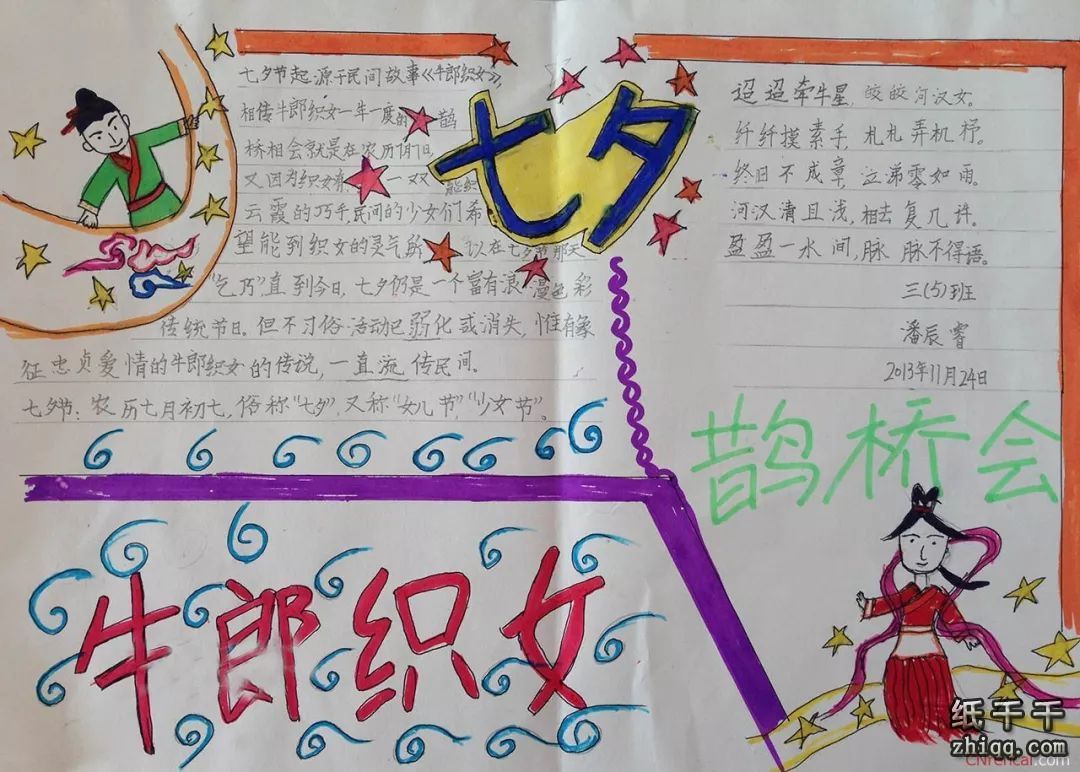 七夕
七夕节起源于民间故事《牛郎织女》,
相传牛郎织女一年一度的 鹊
桥相会就是在农历
又因为织女有 一双 能织
云霞的巧手民间的少女们希
望能到织女的灵气所 以在七夕节那天
"乞巧",直到今日,七夕仍是一个富有浪 漫色彩
传统节日。但不习俗活动已弱化或消失,惟有象
征忠贞爱情的牛郎织女的传说,一直流传民间。
七夕节:农历七月初七,俗称"七夕",又称"女儿节""少女节"。
迢迢牵牛星,皎皎河汉女。
纤纤摸素手,札札弄机杼。
终日不成章,泣涕零如雨。
河汉清且浅,相去复几许。
盈盈一水间,脉脉不得语。
三(5)班
潘辰睿
2013年11月24日
鹊桥会
牛郎织女
纸千千
zhiqq.com
CNrencai.com